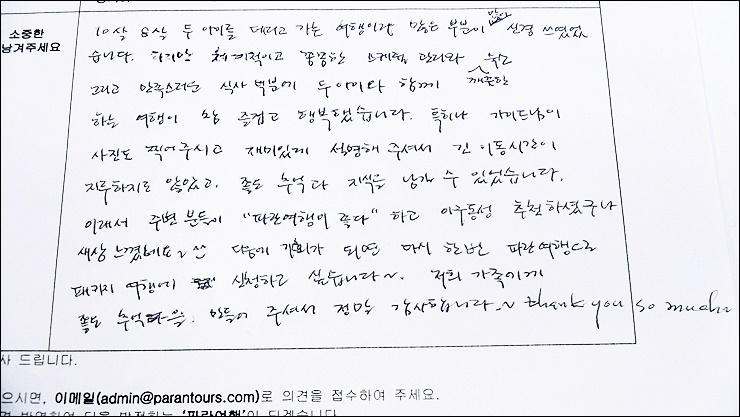 소중한
남겨주세요
10살 8살 두 아이를 데리고 가는 여행이라 많은 부분이 많이 신경 쓰였었
습니다. 하지만 체계적이고 꼼꼼한 스케쥴 관리와 깨끗한 숙소
그리고 만족스러운 식사 덕분에 두 아이와 함께
하는 여행이 참 즐겁고 행복했습니다. 특히나 가이드님이
사진도 찍어주시고 재미있게 설명해 주셔서 긴 이동시간이
지루하지도 않았고. 좋은 추억과 지식을 남길 수 있었습니다.
이래서 주변 분들이 "파란여행이 좋다" 하고 이구동성 추천하셨구나
새삼 느꼈네요~ 다음에 기회가 되면 다시 한번 파란여행으로
패키지 여행에 신청하고 싶습니다~. 저희 가족에게
좋은 추억 만들어 주셔서 정말 감사합니다.~ thank you so much~
사 드립니다.
으시면, 이메일(admin@parantours.com)로 의견을 접수하여 주세요.
견 반영하여 더욱 발전하는 '파란여행'이 되겠습니다